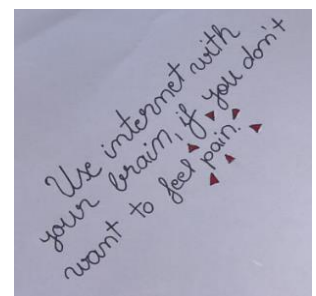 Use internet with
your brain, if you don't
want to feel pain.